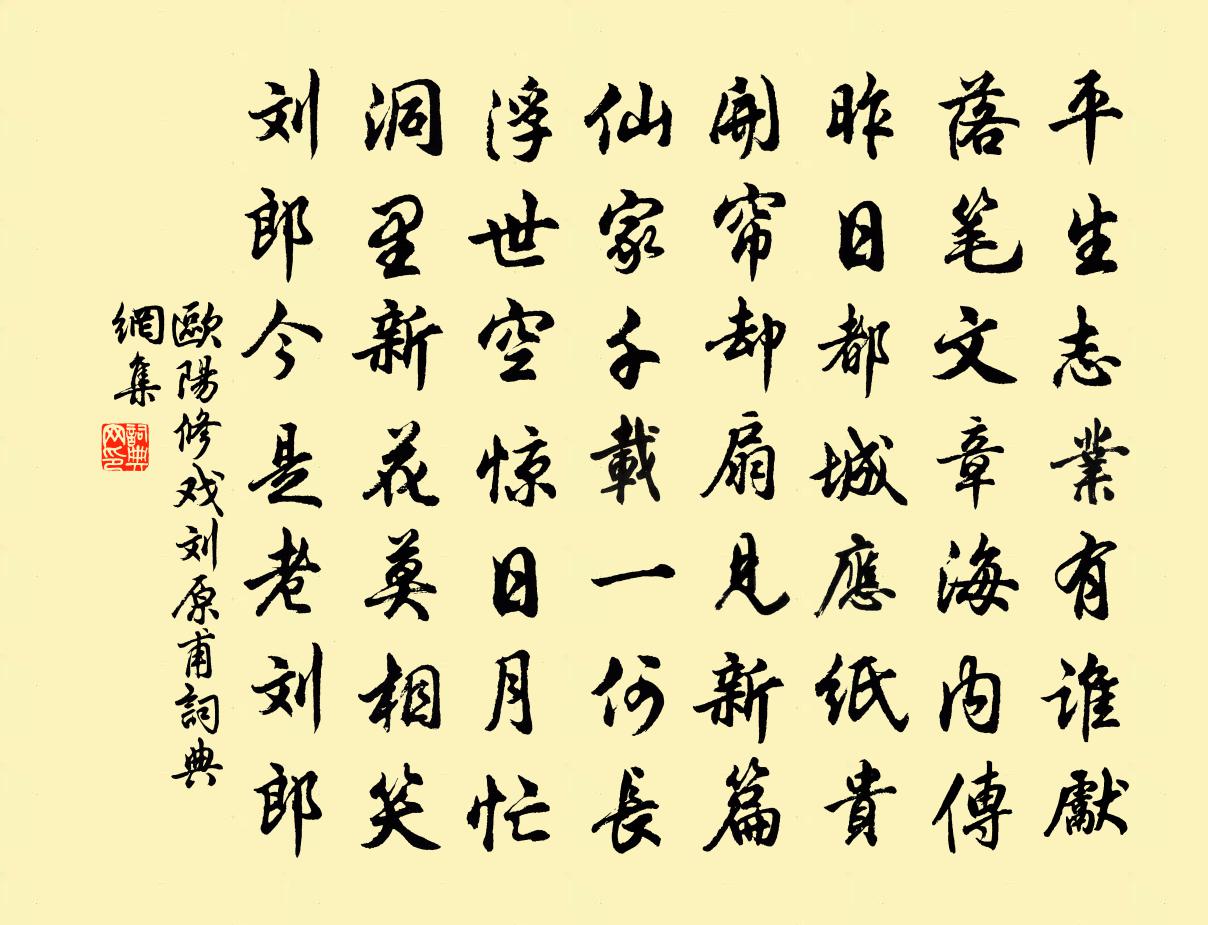 平生志業有谁獻
落笔文章海内傳
昨日都城應紙貴
開帘却扇見新篇
仙家千載一何長
浮世空惊日月忙
洞里新花莫相笑
刘郎今是老刘郎
歐陽修戏刘原甫詞典
網集
詞典
网印